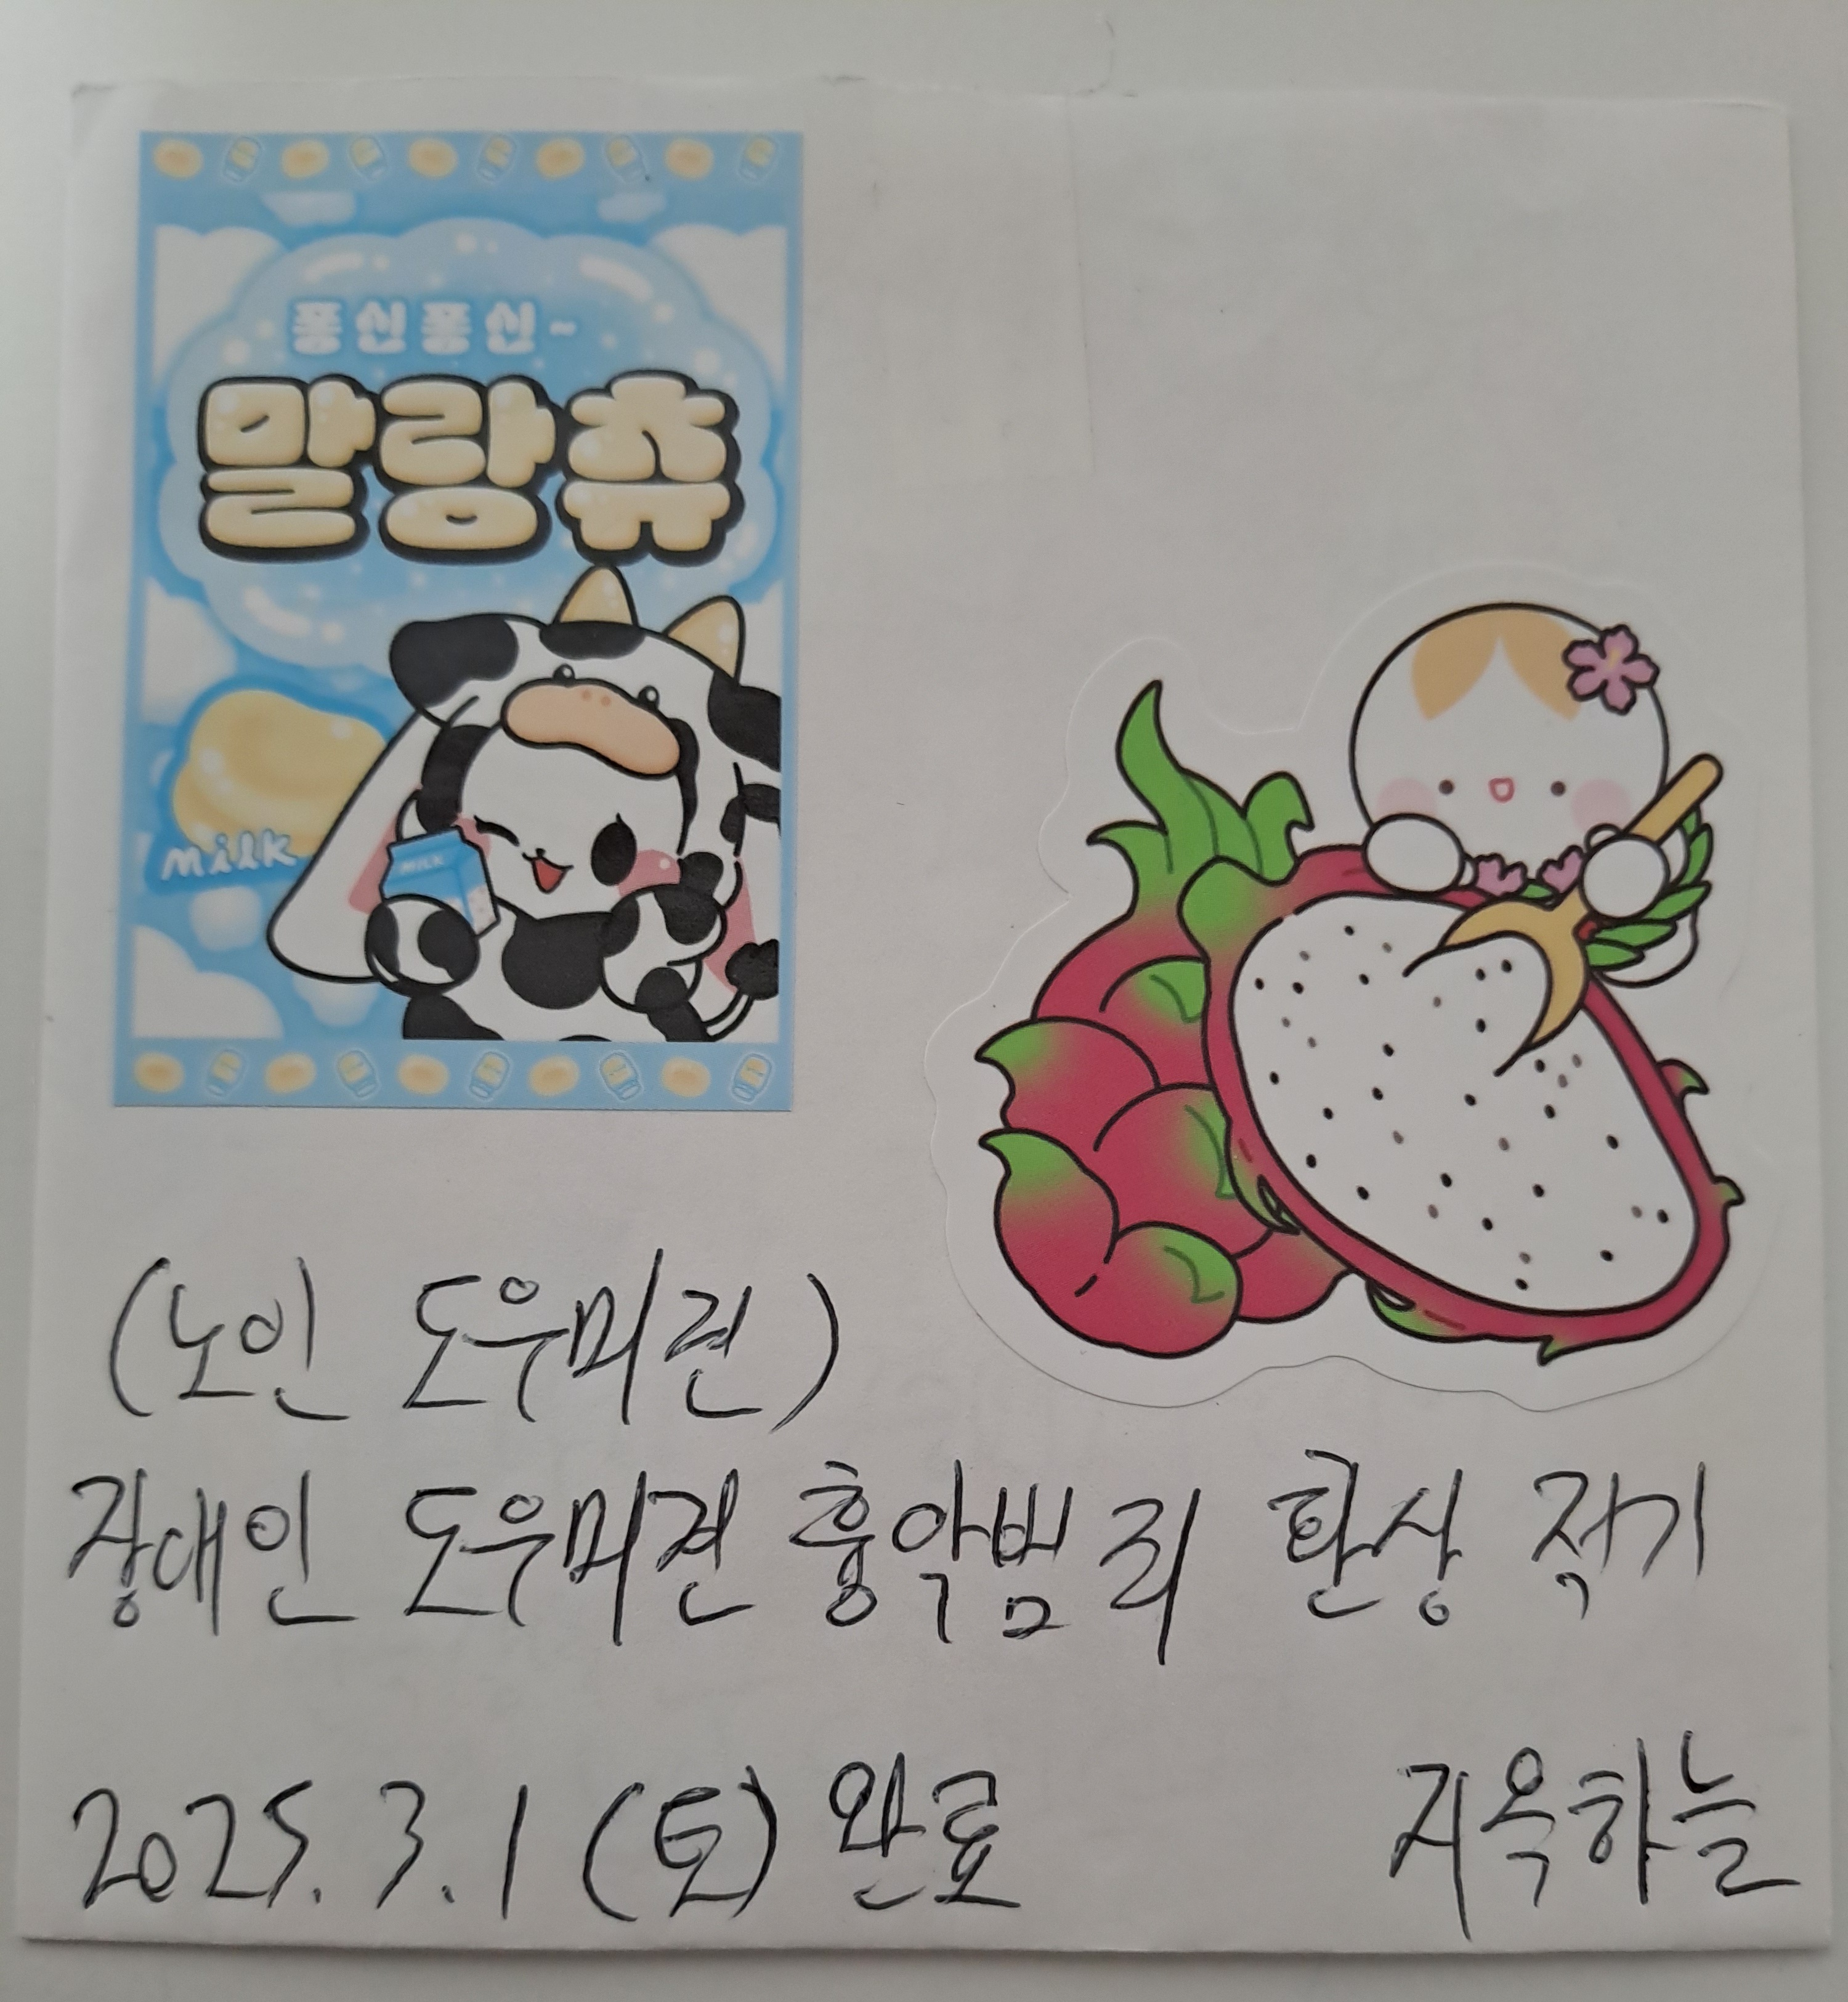 퐁신퐁신~
말랑츄
milk
MILK
(노인 도우미견)
장애인 도우미견 흉악범 리 환상 적기
2025.3.1 (토) 완료 지옥하늘